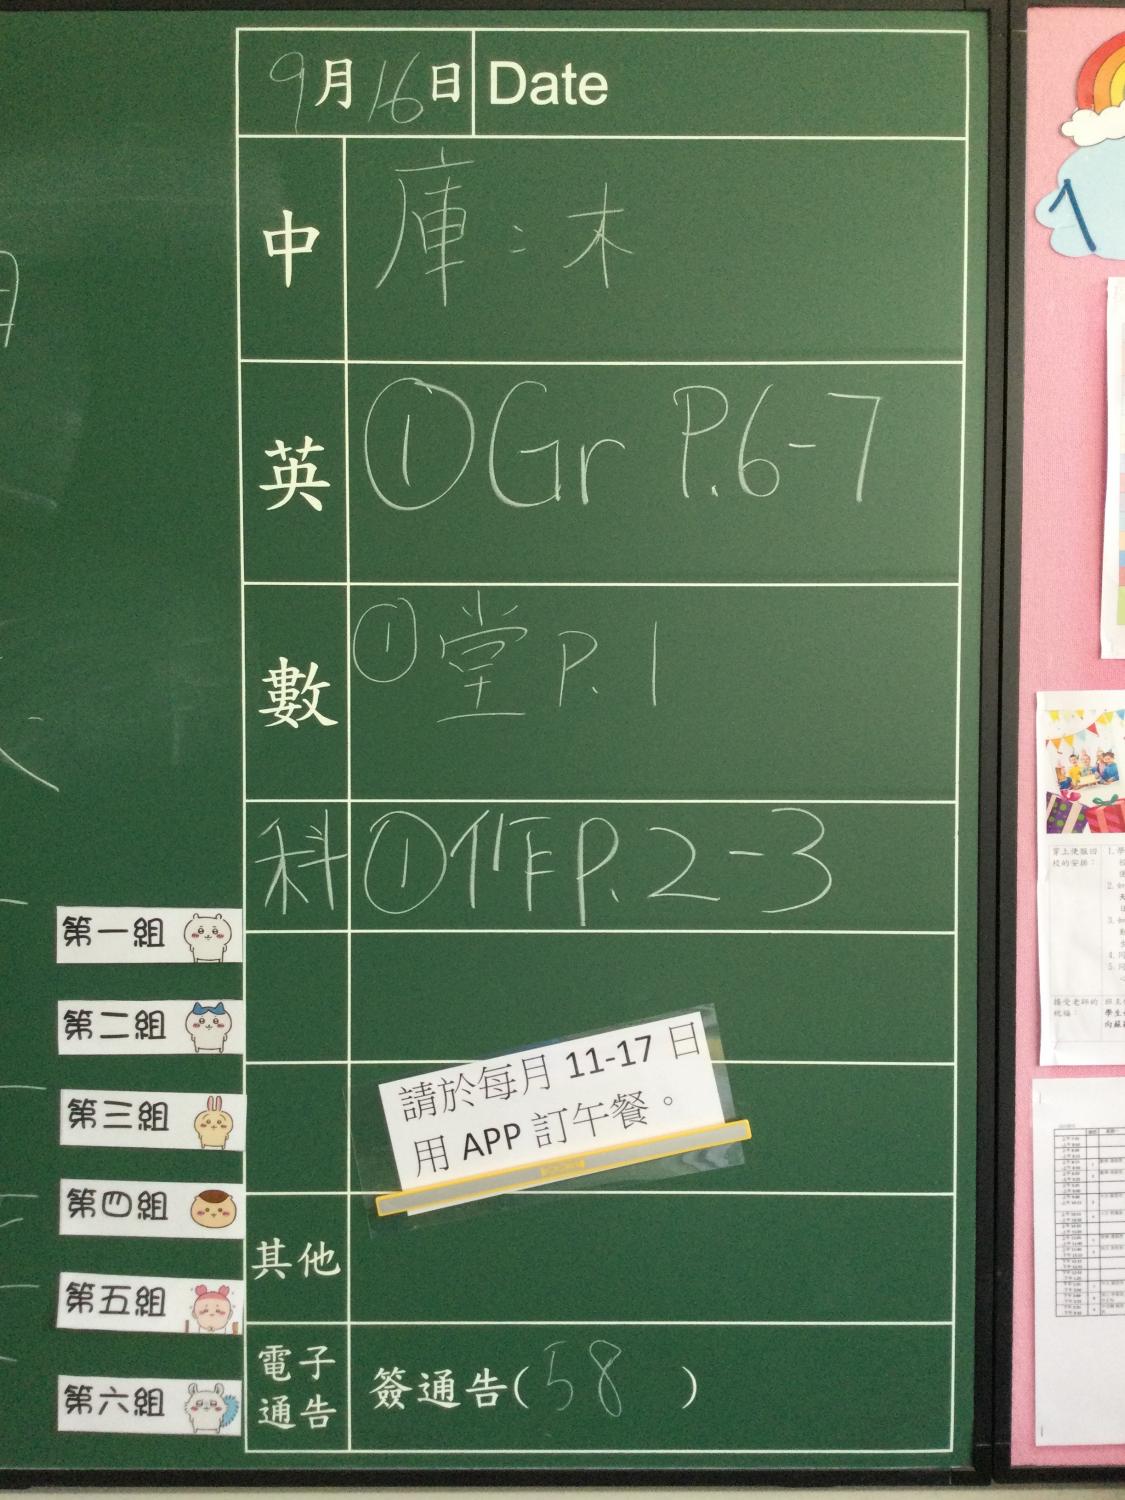 9月16日 Date
中 庫：木
英 ①Gr P.6-7
數 ①堂 P.1
科 ①作P.2-3
第一組
第二組
第三組
第四組
第五組
第六組
請於每月 11-17 日
用 APP 訂午餐。
其他
電子通告 簽通告(58)
1
穿上便服回
校的安排：
接受老師的
祝福：